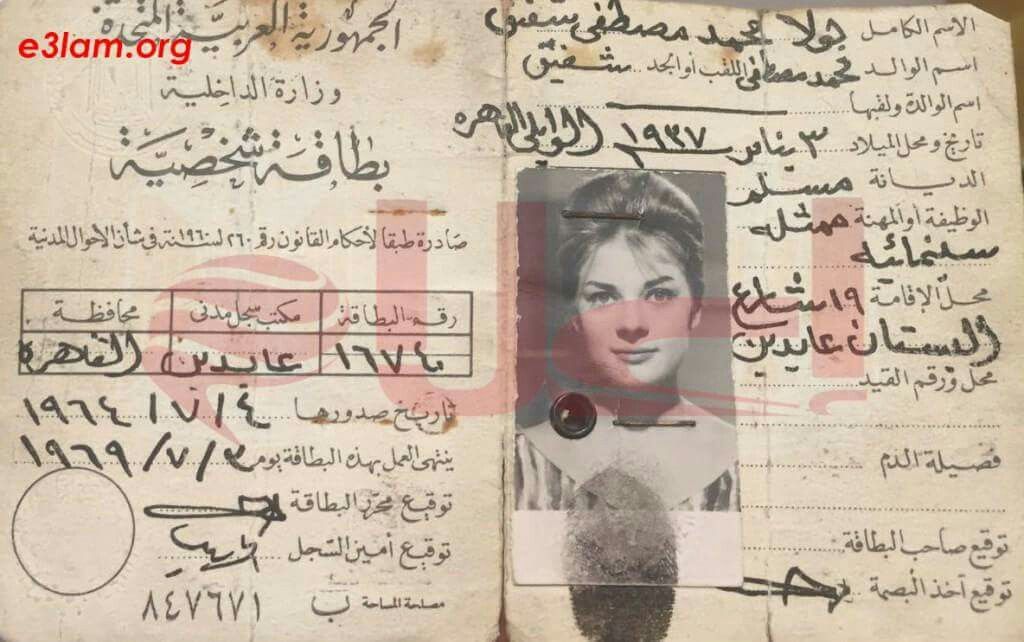 الاسم الكامل بولا محمد مصطفى شفيق
اسم الوالد محمد مصطفى اللقب أو الجد شفيق
اسم الوالدة ولقبها
تاريخ ومحل الميلاد ٣ يناير ١٩٣٧ الوايلى القاهره
الديانة مسلم
الوظيفة أو المهنة ممثله
سنمائيه
محل الإقامة ١٩ شارع
البستان عابدين
محل ورقم القيد
فصيلة الدم
توقيع صاحب البطاقة
توقيع آخذ البصمة
e3lam.org
الجمهورية العربية المتحدة
وزارة الداخلية
بطاقة شخصية
صادرة طبقا لأحكام القانون رقم ٢٦٠ لسنة ١٩٦٠ فى شأن الأحوال المدنية
رقم البطاقة مكتب سجل مدنى محافظة
١٦٧٤٠ عابدين القاهره
تاريخ صدورها ٤ / ٧ / ١٩٦٤
ينتهى العمل بهذه البطاقة يوم ٣ / ٧ / ١٩٦٩
توقيع محرر البطاقة
توقيع أمين السجل
مصلحة المساحة ب ٨٤٧٦٧١
إعلام